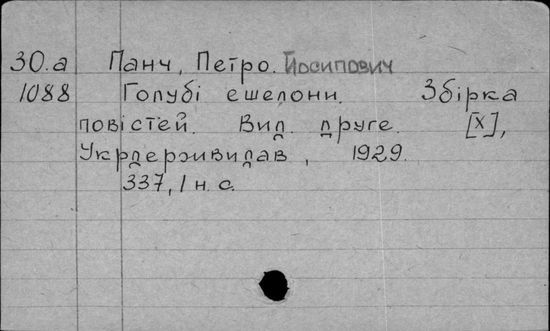 30.а Панч, Петро. Йосипович
1088 Голубі ешелони. Збірка
повістей. Вид. друге. [Х],
Укрдержвидав, 1929.
337, 1 н. с.